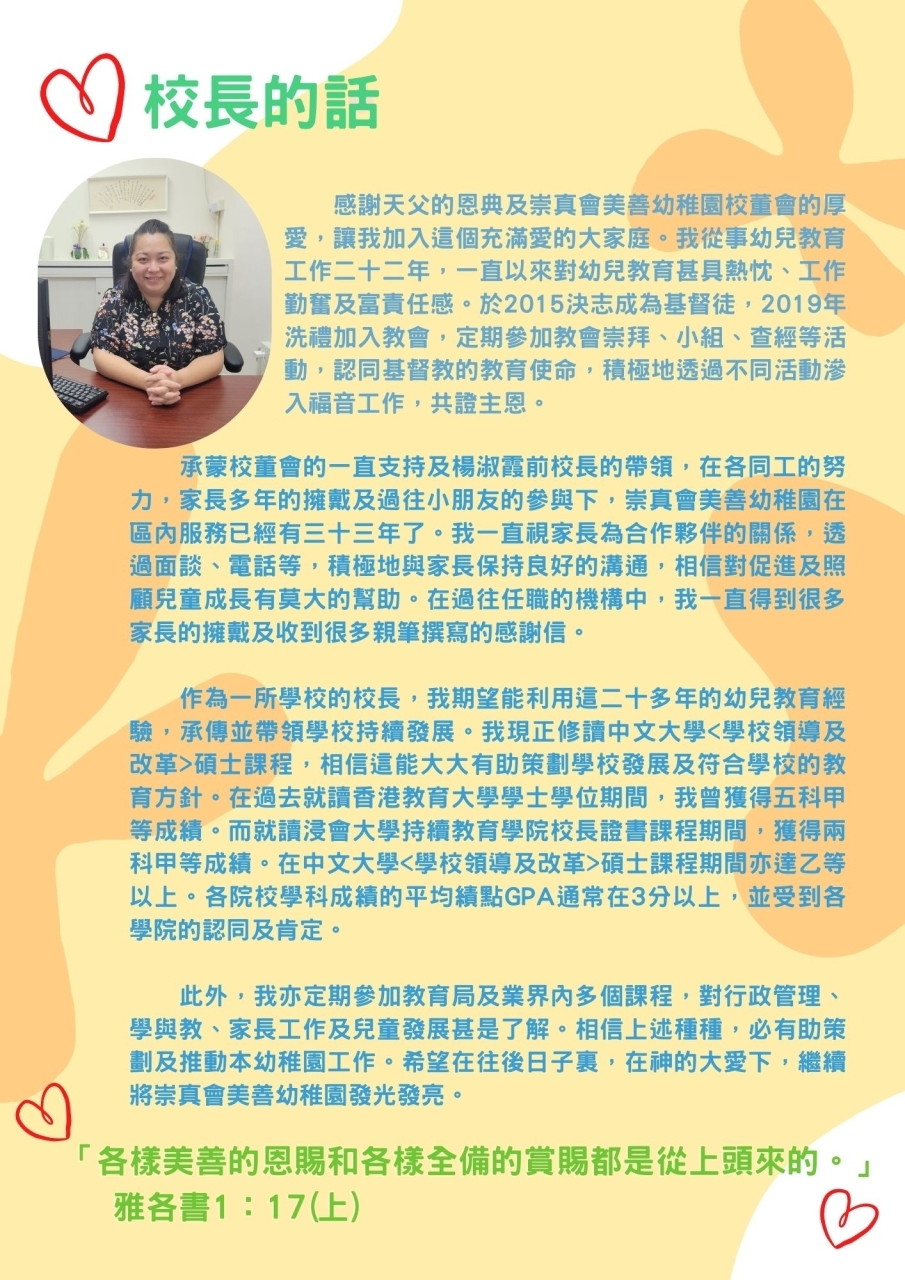 校長的話
感謝天父的恩典及崇真會美善幼稚園校董會的厚
愛，讓我加入這個充滿愛的大家庭。我從事幼兒教育
工作二十二年，一直以來對幼兒教育甚具熱忱、工作
勤奮及富責任感。於2015決志成為基督徒，2019年
洗禮加入教會，定期參加教會崇拜、小組、查經等活
動，認同基督教的教育使命，積極地透過不同活動滲
入福音工作，共證主恩。
承蒙校董會的一直支持及楊淑霞前校長的帶領，在各同工的努
力，家長多年的擁戴及過往小朋友的參與下，崇真會美善幼稚園在
區內服務已經有三十三年了。我一直視家長為合作夥伴的關係，透
過面談、電話等，積極地與家長保持良好的溝通，相信對促進及照
顧兒童成長有莫大的幫助。在過往任職的機構中，我一直得到很多
家長的擁戴及收到很多親筆撰寫的感謝信。
作為一所學校的校長，我期望能利用這二十多年的幼兒教育經
驗，承傳並帶領學校持續發展。我現正修讀中文大學<學校領導及
改革>碩士課程，相信這能大大有助策劃學校發展及符合學校的教
育方針。在過去就讀香港教育大學學士學位期間，我曾獲得五科甲
等成績。而就讀浸會大學持續教育學院校長證書課程期間，獲得兩
科甲等成績。在中文大學<學校領導及改革>碩士課程期間亦達乙等
以上。各院校學科成績的平均績點GPA通常在3分以上，並受到各
學院的認同及肯定。
此外，我亦定期參加教育局及業界內多個課程，對行政管理、
學與教、家長工作及兒童發展甚是了解。相信上述種種，必有助策
劃及推動本幼稚園工作。希望在往後日子裏，在神的大愛下，繼續
將崇真會美善幼稚園發光發亮。
「各樣美善的恩賜和各樣全備的賞賜都是從上頭來的。」
雅各書1：17(上)